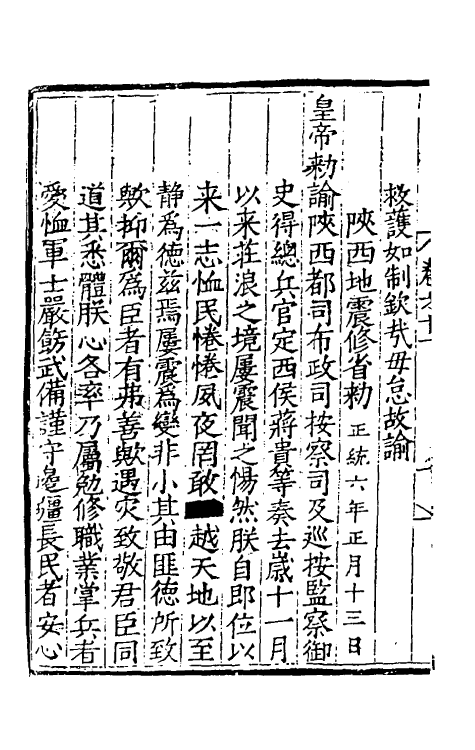 救護如制欽㢤毋怠故諭
陝西地震修省勑 正統六年正月十三日
皇帝勑諭陝西都司布政司按察司及巡按監察御
史得總兵官定西侯蔣貴等奏去嵗十一月
以来荘浪之境屢震聞之惕然朕自即位以
来一志恤民惓惓夙夜罔敢越天地以至
静爲徳兹焉屢震爲變非小其由匪徳所致
歟抑爾爲臣者有弗善歟遇灾致敬君臣同
道其悉體朕心各率乃屬勉修職業掌兵者
愛恤軍士嚴飭武備謹守邊疆長民者安心